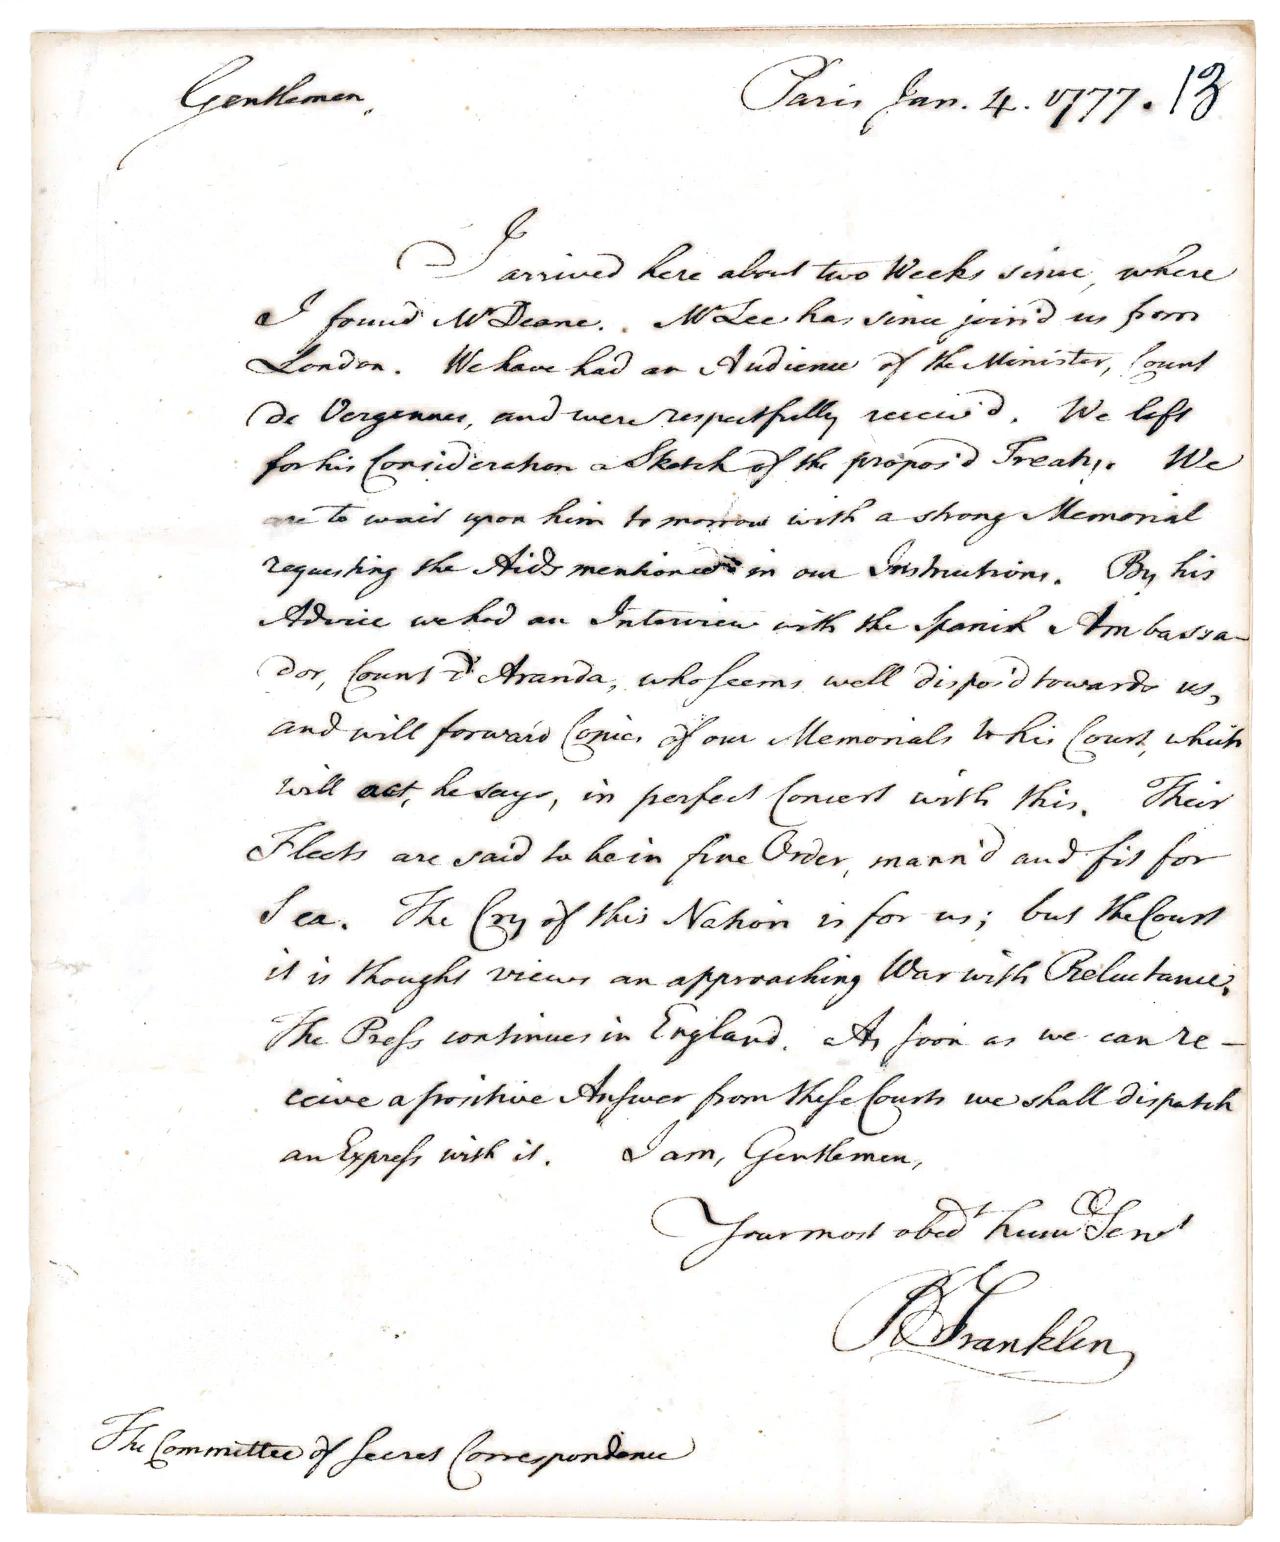 Gentlemen, Paris Jan. 4. 1777. 13
I arrived here about two Weeks since, where
I found Mr Deane. Mr Lee has since join'd us from
London. We have had an Audience of the Minister, Count
de Vergennes, and were respectfully receiv'd. We left
for his Consideration a Sketch of the propos'd Treaty. We
are to wait upon him to morrow with a strong Memorial
requesting the Aids mentioned in our Instructions. By his
Advice we had an Interview with the Spanish Ambassa-
dor, Count d'Aranda, who seems well dispos'd towards us,
and will forward Copies of our Memorials to his Court, which
will act, he says, in perfect Concert with this. Their
Fleets are said to be in fine Order, mann'd and fit for
Sea. The Cry of this Nation is for us; but the Court
it is thought views an approaching War with Reluctance.
The Press continues in England. As soon as we can re-
ceive a positive Answer from these Courts we shall dispatch
an Express with it. I am, Gentlemen,
Your most obedt humb Servt
B Franklin
The Committee of Secret Correspondence